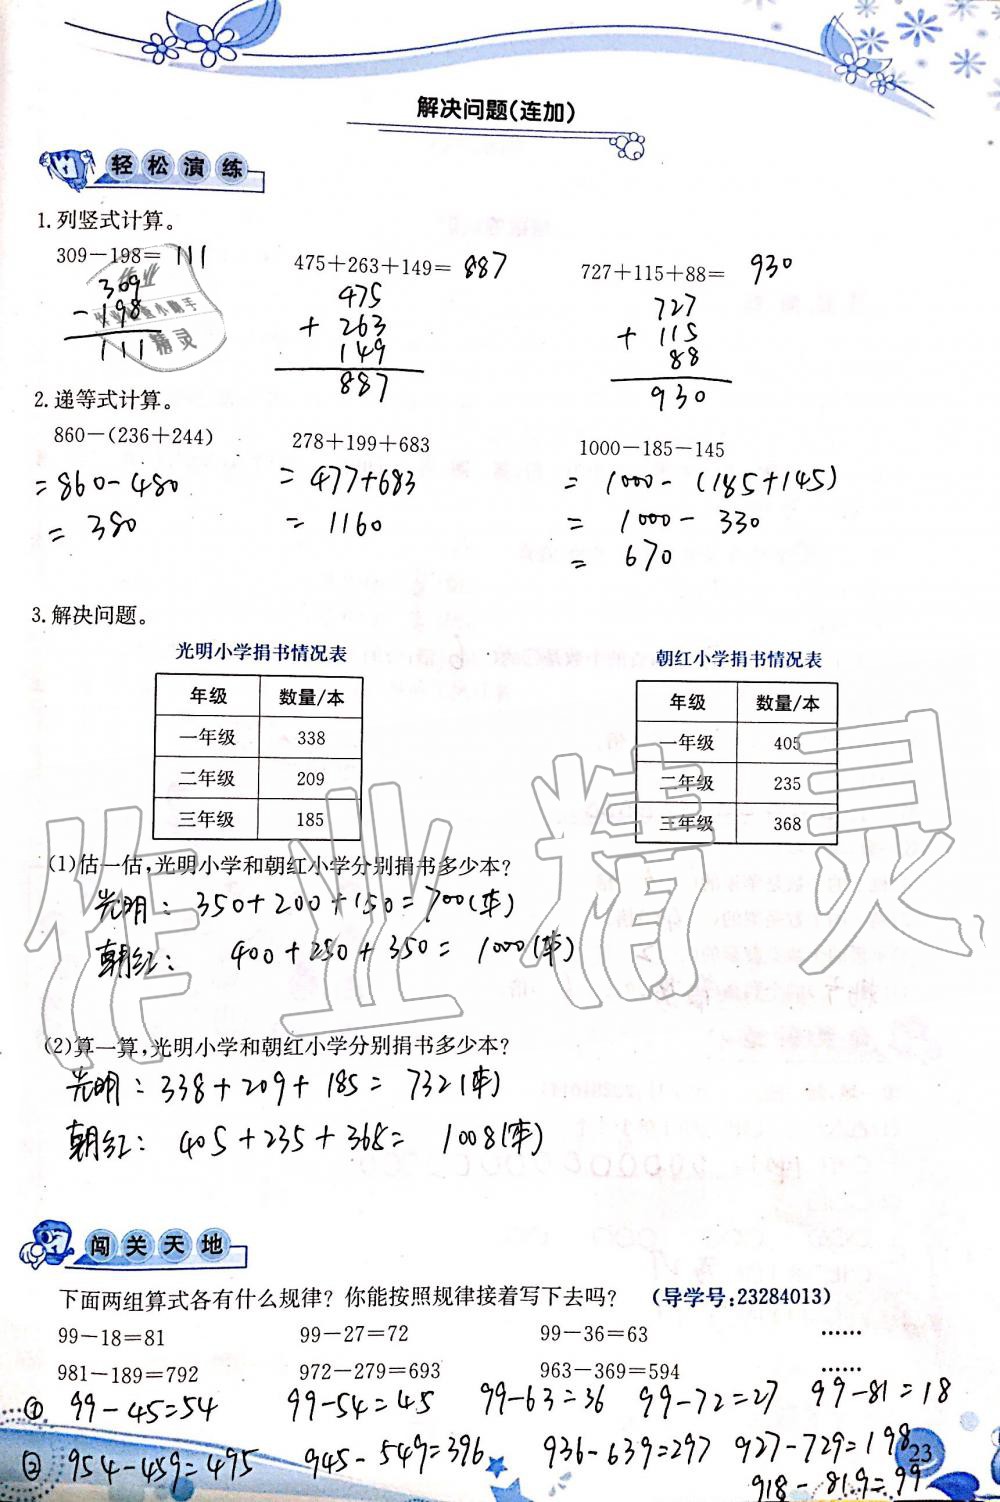 解决问题(连加)
轻松演练
1.列竖式计算。
309-198= 111
475+263+149= 887
727+115+88= 930
309
-198
111
475
+ 263
149
887
727
+ 115
88
930
2.递等式计算。
860-(236+244)
278+199+683
1000-185-145
=860-480
= 477+683
= 1000-(185+145)
= 380
= 1160
= 1000-330
= 670
3.解决问题。
光明小学捐书情况表
年级 数量/本
一年级 338
二年级 209
三年级 185
朝红小学捐书情况表
年级 数量/本
一年级 405
二年级 235
三年级 368
(1)估一估,光明小学和朝红小学分别捐书多少本?
光明: 350+200+150=700(本)
朝红: 400+250+350= 1000(本)
(2)算一算,光明小学和朝红小学分别捐书多少本?
光明: 338+209+185= 732(本)
朝红: 405+235+368= 1008(本)
闯关天地
下面两组算式各有什么规律? 你能按照规律接着写下去吗? (导学号:23284013)
99-18=81 99-27=72 99-36=63 ……
981-189=792 972-279=693 963-369=594 ……
① 99-45=54 99-54=45 99-63=36 99-72=27 99-81=18
② 954-459=495 945-549=396 936-639=297 927-729=198
918-819=99
23
作业精灵
作业
作业检查小助手
精灵